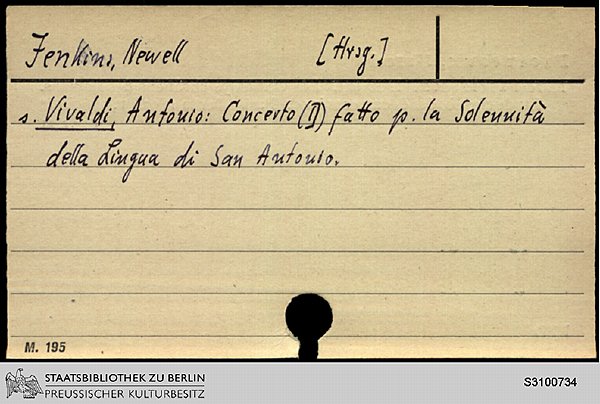 Jenkins, Newell [Hrsg.]
s. Vivaldi, Antonio: Concerto (D) fatto p. la Solennità
della Lingua di San Antonio.
M. 195
STAATSBIBLIOTHEK ZU BERLIN
PREUSSISCHER KULTURBESITZ
S3100734